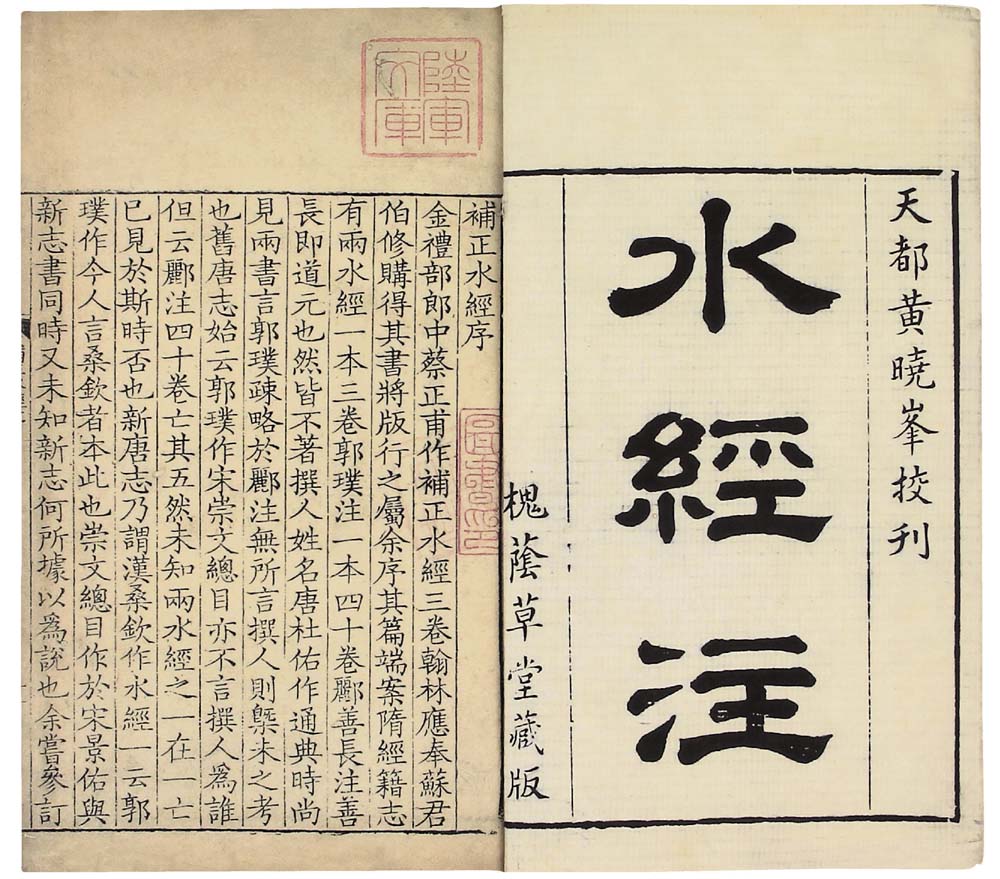 天都黃曉峯挍刊
水經注
槐蔭草堂藏版
陸軍
文庫
補正水經序
金禮部郎中蔡正甫作補正水經三卷翰林應奉蘇君
伯修購得其書將版行之屬余序其篇端案隋經籍志
有兩水經一本三卷郭璞注一本四十卷酈善長注善
長即道元也然皆不著撰人姓名唐杜佑作通典時尚
見兩書言郭璞疎略於酈注無所言撰人則槩未之考
也舊唐志始云郭璞作宋崇文總目亦不言撰人爲誰
但云酈注四十卷亡其五然未知兩水經之一在一亡
已見於斯時否也新唐志乃謂漢桑欽作水經一云郭
璞作今人言桑欽者本此也崇文總目作於宋景佑與
新志書同時又未知新志何所據以爲說也余嘗參訂